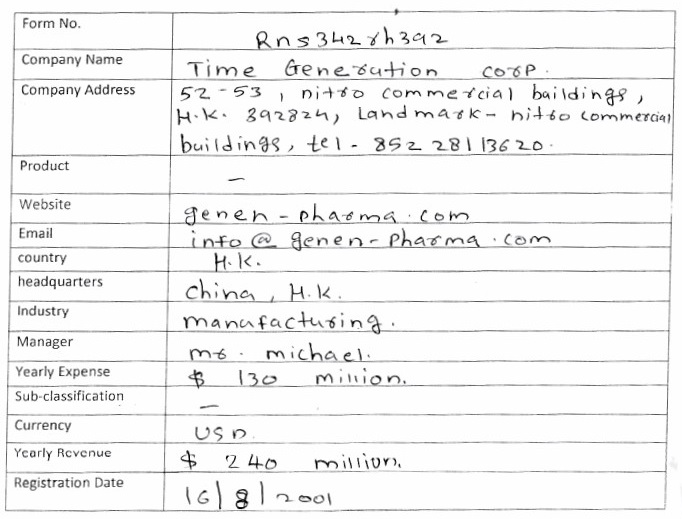 Form No. Rns342rh392
Company Name Time Generation corp.
Company Address 52-53, nitro commercial buildings,
H.K. 392824, Landmark - nitro commercial
buildings, tel - 852 28113620.
Product –
Website genen-pharma.com
Email info@genen-pharma.com
country H.K.
headquarters China, H.K.
Industry manufacturing.
Manager mr. michael.
Yearly Expense $ 130 million.
Sub-classification –
Currency USD.
Yearly Revenue $ 240 million.
Registration Date 16/8/2001